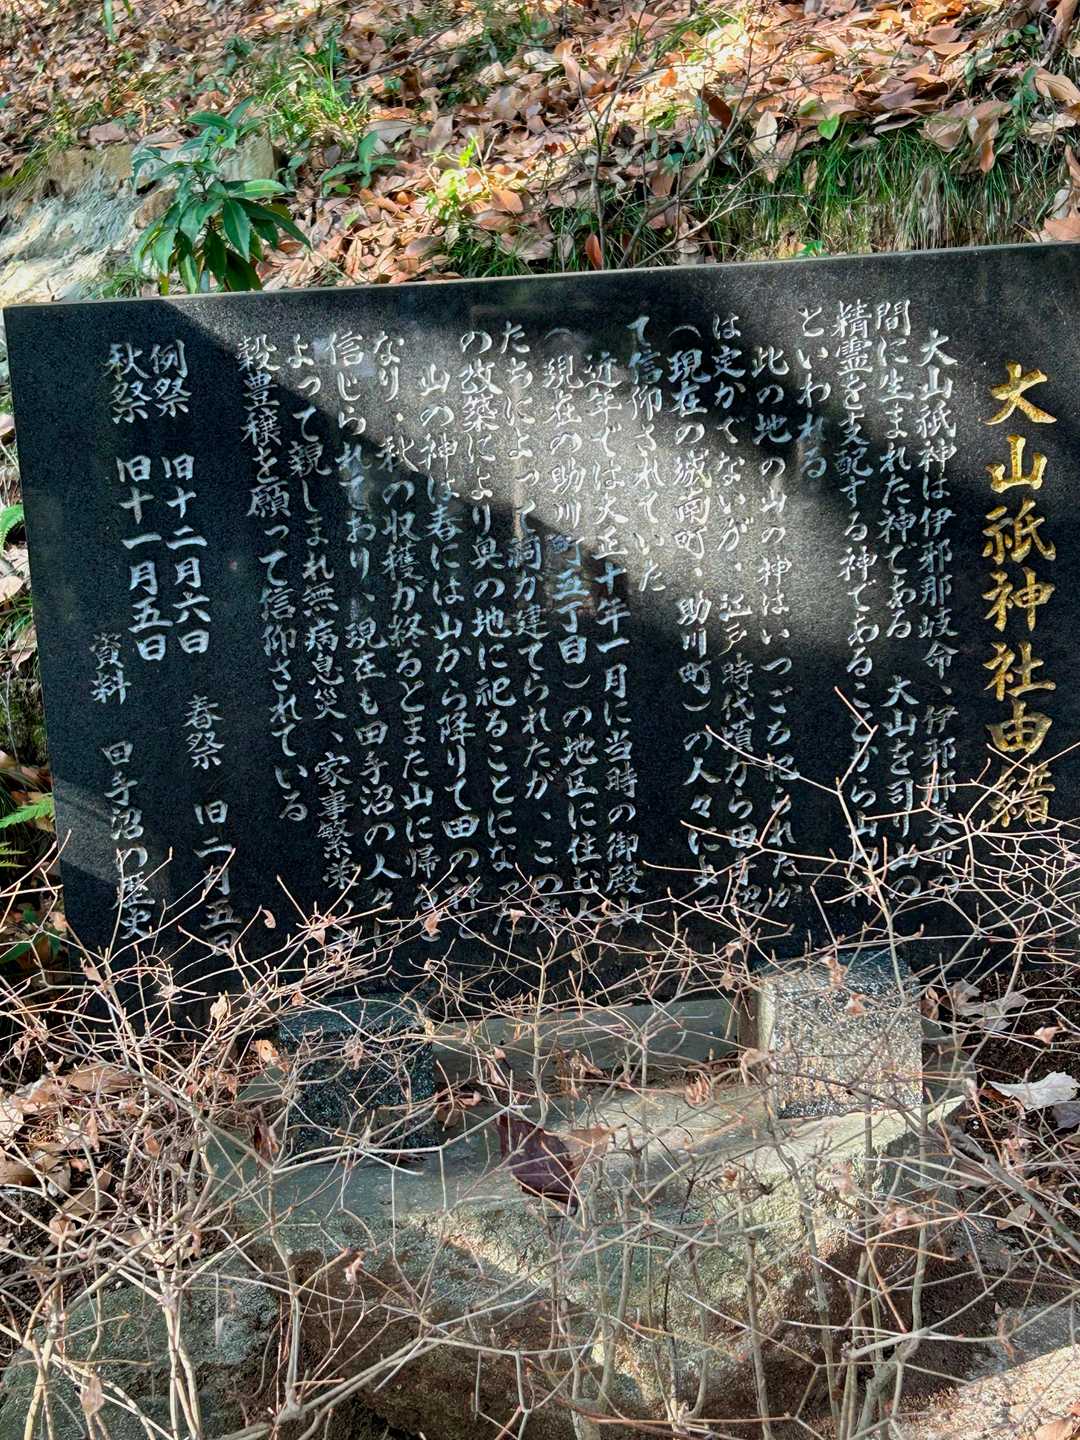 大山祇神社由緒
大山祇神は伊邪那岐命、伊邪那美命の
間に生まれた神である 大山を司り山の
精霊を支配する神であることから山の神
といわれる
此の地の山の神はいつごろ祀られたか
は定かでないが、江戸時代頃から田手沼
(現在の城南町、助川町)の人々によっ
て信仰されていた
近年では大正十年一月に当時の御殿山
(現在の助川町五丁目)の地区に住む人
たちによって祠が建てられたが、この度
の改築により奥の地に祀ることになった
山の神は春には山から降りて田の神と
なり、秋の収穫が終るとまた山に帰ると
信じられており、現在も田手沼の人々に
よって親しまれ無病息災、家事繁栄、
穀豊穣を願って信仰されている
例祭 旧十二月六日 春祭 旧二月五日
秋祭 旧十一月五日
資料 田手沼の歴史